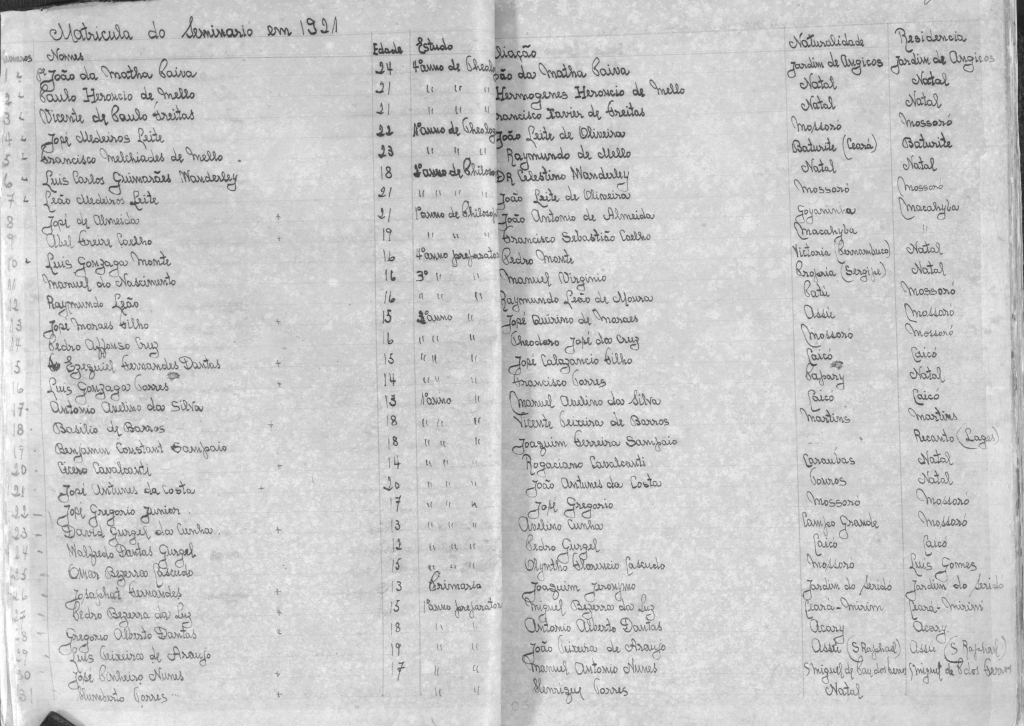 Matricula do Seminario em 1921
Numeros Nomes Edade Estudo liação Naturalidade Residencia
1 " João da Matha Paiva 24 4º anno de Theal oão da Matha Paiva Jardim de Angicos Jardim de Angicos
2 " Paulo Heroncio de Mello 21 " " " Hermogenes Heroncio de Mello Natal Natal
3 " Vicente de Paulo Freitas 21 " " " Francisco Xavier de Freitas Natal Natal
4 " José Medeiros Leite 22 1º anno de Theolog João Leite de Oliveira Mossoró Mossoró
5 " Francisco Melchiades de Mello 23 " " " Raymundo de Mello Baturité (Ceará) Baturité
6 " Luis Carlos Guimarães Wanderley 18 2º anno de Philoso DR Celestino Wanderley Natal Natal
7 " Leão Medeiros Leite 21 " " " João Leite de Oliveira Mossoró Mossoró
8 José de Almeida + 21 1º anno de Philosop João Antonio de Almeida Goyaninha Macahyba
9 Abel Freire Coelho + 19 " " " Francisco Sebastião Coelho Macahyba "
10 " Luis Gonzaga Monte 16 4º anno preparator Pedro Monte Victoria (Pernambuco) Natal
11 Manuel do Nascimento 16 3º " " Manuel Virginio Propria (Sergipe) Natal
12 Raymundo Leão 16 " " " Raymundo Leão de Moura Patú Mossoró
13 José Moraes Filho + 15 2º anno " José Quirino de Moraes Assú Mossoró
14 Pedro Affonso Cruz 16 " " " Theodoro José da Cruz Mossoró Mossoró
5 Ezequiel Fernandes Dantas + 15 " " " José Calazancio Filho Caicó Caicó
16 Luis Gonzaga Torres + 14 " " " Francisco Torres Papary Natal
17 Antonio Avelino da Silva 13 1º anno " Manuel Avelino da Silva Caicó Caicó
18 Basilio de Barros 18 " " " Vicente Teixeira de Barros Martins Martins
19 Benjamin Constant Sampaio 18 " " " Joaquim Ferreira Sampaio Recanto (Lages)
20 Cicero Cavalcanti 14 " " " Rogaciano Cavalcanti Caraubas Natal
21 José Antunes da Costa + 20 " " " João Antunes da Costa Touros Natal
22 José Gregorio Junior 17 " " " José Gregorio Mossoró Mossoró
23 David Gurgel da Cunha + 13 " " " Avelino Cunha Campo Grande Mossoró
24 Walfredo Dantas Gurgel 12 " " " Pedro Gurgel Caicó Caicó
25 Omar Bezerra Cascudo 15 " " " Olyntho Florencio Cascudo Mossoró Luis Gomes
26 Josaphat Fernandes + 13 Primaria Joaquim Jeronymo Jardim do Serido Jardim do Serido
27 Pedro Bezerra da Luz + 15 1º anno preparator Miguel Bezerra da Luz Ceara-Mirim Ceara-Mirim
28 Gregorio Alberto Dantas + 18 " " Antonio Alberto Dantas Acary Acary
29 Luis Teixeira de Araujo + 19 " " João Teixeira de Araujo Assú (S Raphael) Assú (S Raphael)
30 José Pinheiro Nunes + 7 " " Manuel Antonio Nunes S Miguel de Pau dos Ferros S Miguel de P dos Ferros
31 Humberto Torres + " " Torres Natal